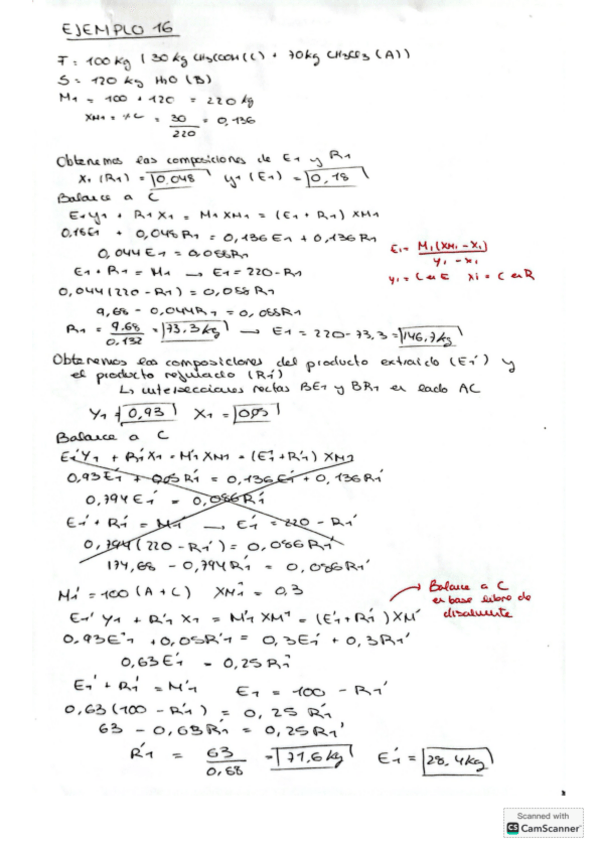 EJEMPLO 16
F = 100 kg (30 kg CH3COOH (C) + 70 kg CHCl3 (A))
S = 120 kg H2O (B)
M1 = 100 + 120 = 220 kg
XM1 = XC = 30/220 = 0,136
Obtenemos las composiciones de E1 y R1
X1 (R1) = 0,048 Y1 (E1) = 0,18
Balance a C
E1Y1 + R1X1 = M1XM1 = (E1 + R1) XM1
0,18E1 + 0,048R1 = 0,136E1 + 0,136R1
0,044E1 = 0,088R1
E1 = M1(XM1 - X1) / y1 - x1
E1 + R1 = M1 → E1 = 220 - R1
y1 = C en E xi = C en R
0,044(220 - R1) = 0,088R1
9,68 - 0,044R1 = 0,088R1
R1 = 9.68/0,132 = 73,3 kg → E1 = 220 - 73,3 = 146,7 kg
Obtenemos las composiciones del producto extraído (E1') y
el producto refinado (R1')
↳ intersecciones rectas BE1 y BR1 en lado AC
Y1 = 0,93 X1 = 0,05
Balance a C
E1'Y1 + R1'X1 = M1'XM1 = (E1' + R1') XM1
0,93E1' + 0,05R1' = 0,136E1' + 0,136R1'
0,794E1' = 0,086R1'
E1' + R1' = M1' → E1' = 220 - R1'
0,794(220 - R1') = 0,086R1'
174,68 - 0,794R1' = 0,086R1'
M1' = 100 (A + C) XM1' = 0,3
→ Balance a C
en base libre de
disolvente
E1' Y1 + R1' X1 = M'1 XM1' = (E1' + R1') XM'
0,93E'1 + 0,05R'1 = 0,3E1' + 0,3R1'
0,63E1' = 0,25R1'
E1' + R1' = M'1 E1 = 100 - R1'
0,63(100 - R'1) = 0,25R1'
63 - 0,63R1' = 0,25R1'
R'1 = 63/0,88 = 71,6 kg E1' = 28,4 kg
Scanned with
CS CamScanner